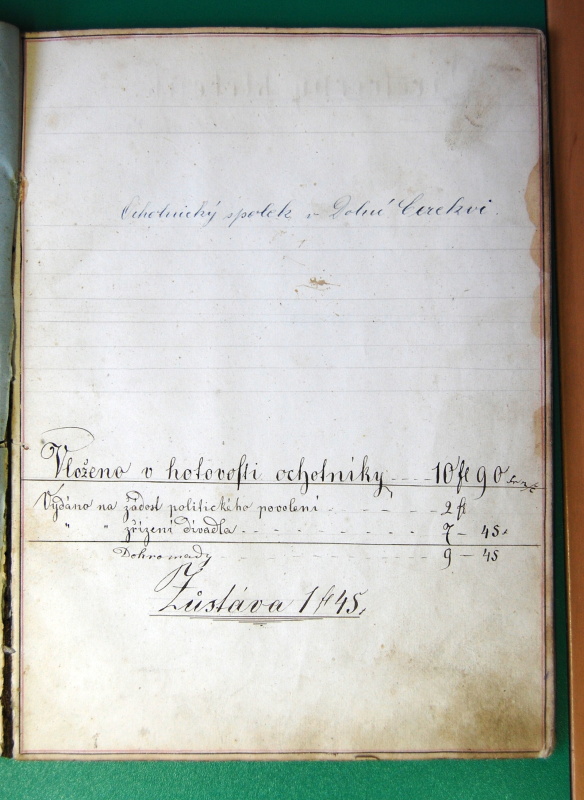 Ochotnický spolek v Dolní Cerekvi.
Vloženo v hotovosti ochotníky 10 fl 90
Vydáno na žádost politického povolení 2 fl
" " zřízení divadla 7 – 45
Dohromady 9 – 45
Zůstáva 1 fl 45,